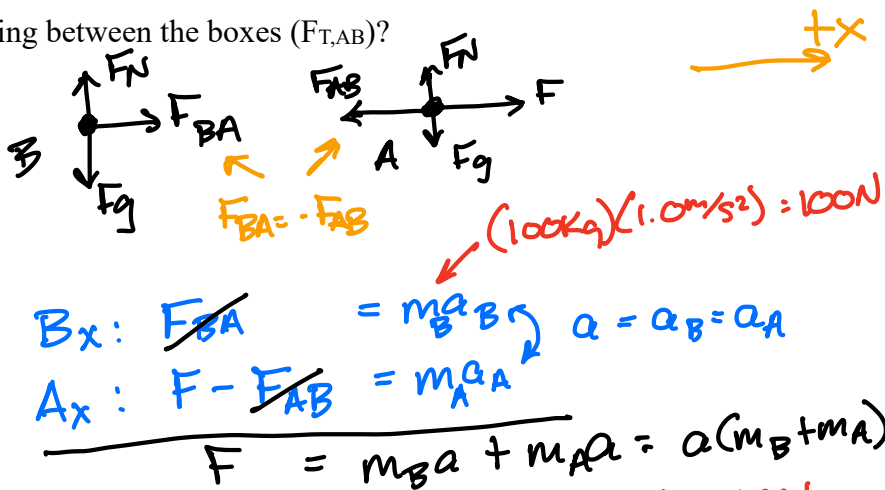 ing between the boxes (FT,AB)?
+x
FN FAB FN F
B FBA A Fg
Fg FBA = - FAB
(100kg)(1.0m/s²) = 100N
Bx: FBA = mB aB a = aB = aA
Ax: F - FAB = mA aA
F = mBa + mAa = a(mB + mA)